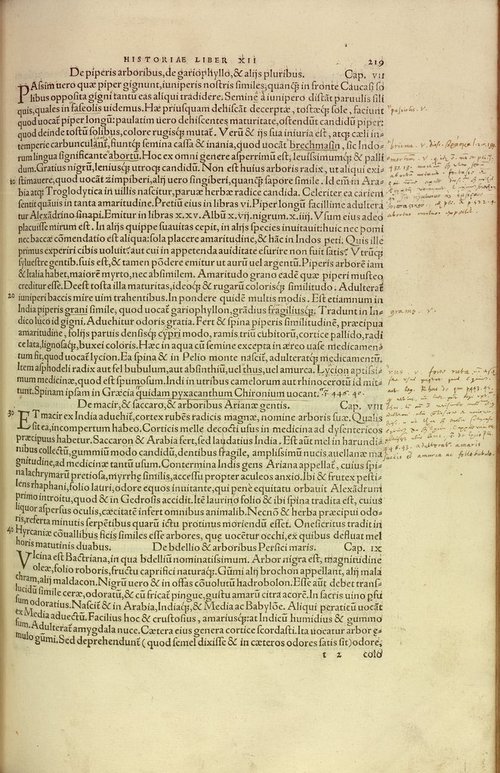 HISTORIAE LIBER XII 219
De piperis arboribus, de gariophyllo, & alijs pluribus. Cap. VII
PAssim uero quæ piper gignunt, iuniperis nostris similes, quanq̃ in fronte Caucasi so
libus opposita gigni tantu eas aliqui tradidere. Semine a iunipero distãt paruulis sili
quis, quales in faseolis uidemus. Hæ priusquam dehiscãt decerptæ, tostæq̃ sole, faciunt
quod uocãt piper longũ: paulatim uero dehiscentes maturitate, ostendũt candidũ piper:
quod deinde tostũ solibus, colore rugisq̃ mutať. Verũ & ijs sua iniuria est, atq̃ cæli in-
temperie carbunculãť, fiuntq̃ semina cassa & inania, quod uocãt brechmasin, sic Indo-
rum lingua significante abortũ. Hoc ex omni genere asperrimũ est, leuissimumq̃ & palli
dum. Gratius nigrũ, lenius utroq̃ candidũ. Non est huius arboris radix, ut aliqui exi-
10 stimauere, quod uocãt zimpiberi, alij uero singiberi, quanq̃ sapore simile. Id em in Ara-
bia atq̃ Troglodytica in uillis nascitur, paruæ herbæ radice candida. Celeriter ea cariem
sentit quãuis in tanta amaritudine. Pretiũ eius in libras vi. Piper longũ facillime adultera
tur Alexãdrino sinapi. Emitur in libras x.xv. Albũ x.vij. nigrum. x.iiij. Vsum eius adeo
placuisse mirum est. In alijs quippe suauitas cepit, in alijs species inuitauit: huic nec pomi
nec baccæ cõmendatio est aliqua: sola placere amaritudine, & hãc in Indos peti. Quis ille
primus experiri cibis uoluit? aut cui in appetenda auiditate esurire non fuit satis? Vtrũq̃
syluestre gentib. suis est, & tamen põdere emitur ut aurũ uel argentũ. Piperis arborẽ iam
& Italia habet, maiorẽ myrto, nec absimilem. Amaritudo grano eadẽ quæ piperi musteo
creditur esse. Deest tosta illa maturitas, ideoq̃ & rugarũ colorisq̃ similitudo. Adulterať
20 iuniperi baccis mire uim trahentibus. In pondere quidẽ multis modis. Est etiamnum in
India piperis grani simile, quod uocať gariophyllon, grãdius fragiliusq̃. Tradunt in In-
dico luco id gigni. Aduehitur odoris gratia. Fert & spina piperis similitudinẽ, præcipua
amaritudine, folijs paruis densisq̃ cypri modo, ramis triũ cubitorũ, cortice pallido, radi
ce lata, lignosaq̃, buxei coloris. Hac in aqua cũ semine excocta in æreo uase medicamen-
tum fit, quod uocãt lycion. Ea spina & in Pelio monte nascit, adulteratq̃ medicamentũ.
Item asphodeli radix aut fel bubulum, aut absinthiũ, uel rhus, uel amurca. Lycion aptissi-
mum medicinæ, quod est spumosum. Indi in utribus camelorum aut rhinocerotũ id mit
tunt. Spinam ipsam in Græcia quidam pyxacanthum Chironium uocant.
De macir, & saccaro, & arboribus Arianæ gentis. Cap. VIII
30 ET macir ex India aduehiť, cortex rubẽs radicis magnæ, nomine arboris suæ. Qualis
sit ea, incompertum habeo. Corticis melle decocti usus in medicina ad dysentericos
præcipuus habetur. Saccaron & Arabia fert, sed laudatius India. Est aũt mel in harundi
nibus collectũ, gummiũ modo candidũ, dentibus fragile, amplissimũ nucis auellanæ ma
gnitudine, ad medicinæ tantũ usum. Contermina Indis gens Ariana appellať, cuius spi-
na lachrymarũ pretiosa, myrrhæ similis, accessu propter aculeos anxio. Ibi & frutex pesti-
lens raphani, folio lauri, odore equos inuitante, qui penè equitatu orbauit Alexãdrum
primo introitu, quod & in Gedrosis accidit. Itẽ laurino folio & ibi spina tradita est, cuius
liquor aspersus oculis, cæcitatẽ infert omnibus animalib. Necnõ & herba præcipui odo-
ris, referta minutis serpẽtibus quarũ ictu protinus moriendũ esset. Onesicritus tradit in
40 Hyrcaniæ cõuallibus ficis similes esse arbores, quæ uocẽtur occhi, ex quibus defluat mel
horis matutinis duabus. De bdellio & arboribus Persici maris. Cap. IX
VIcina est Bactriana, in qua bdelliũ nominatissimum. Arbor nigra est, magnitudine
oleæ, folio roboris, fructu caprifici naturaq̃. Gũmi alij brochon appellant, alij mala
chram, alij maldacon. Nigrũ uero & in offas cõuolutũ hadrobolon. Esse aũt debet trans-
lucidũ simile ceræ, odoratũ, & cũ fricať pingue, gustu amarũ citra acorẽ. In sacris uino pfu
sum odoratius. Nascit & in Arabia, Indiaq̃, & Media ac Babylõe. Aliqui peraticũ uocãt
ex Media aduectũ. Facilius hoc & crustosius, amariusq̃: at Indicũ humidius & gummo
sum. Adulterať amygdala nuce. Cætera eius genera cortice scordasti. Ita uocatur arbor æ-
mulo gũmi. Sed deprehendunť (quod semel dixisse & in cæteros odores satis sit) odore,
t 2 colo